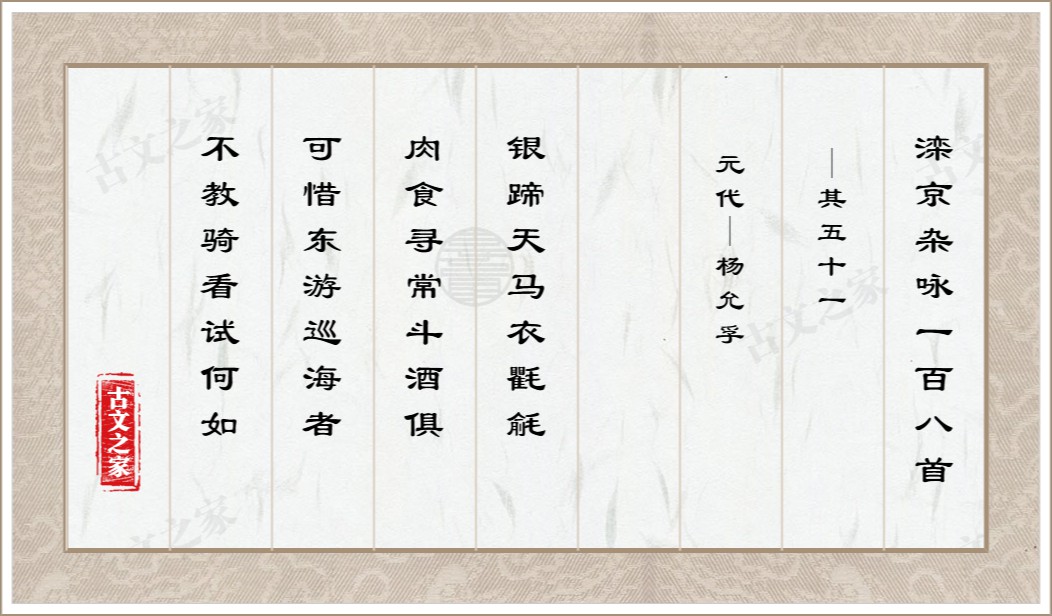 滦京杂咏一百八首
—其五十一
元代—杨允孚
银蹄天马衣氍毹
肉食寻常斗酒俱
可惜东游巡海者
不教骑看试何如
古文之家
古文之家
古文之家
古文之家